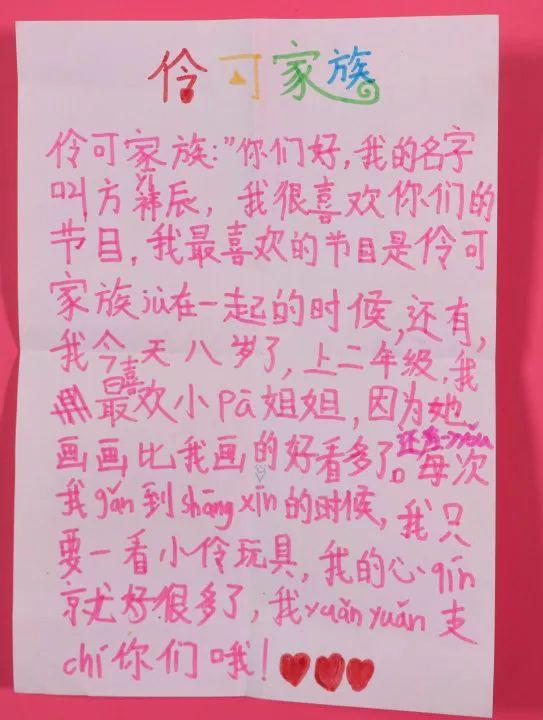 伶可家族
伶可家族:"你们好,我的名字
叫方祎辰,我很喜欢你们的
节目,我最喜欢的节目是伶可
家族jù在一起的时候,还有,
我今天八岁了,上二年级,我
最喜欢小pā姐姐,因为她
画画比我画的好看多了。还有 yǒu每次
我gǎn到shāng xīn的时候,我只
要一看小伶玩具,我的心qín
就好很多了,我yuǎn yuǎn支
chí你们哦!